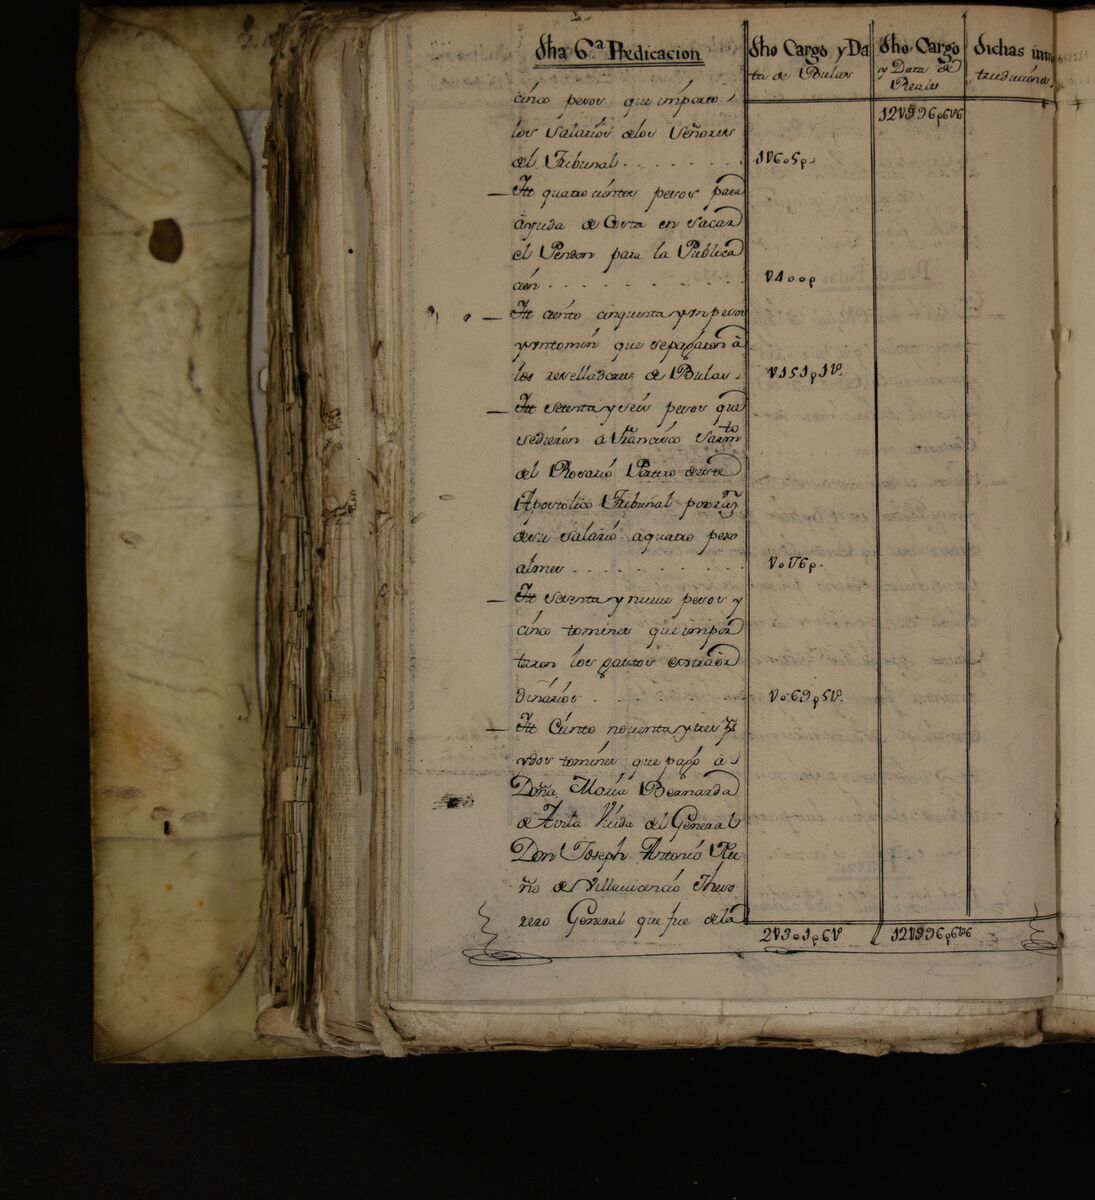 dha 6ª Predicacion
dho Cargo y Da
ta de Bulas
dho Cargo
y Data de
Reales
dichas
cinco pesos que importo
los Salarios delos Señores
del Tribunal . . . . . . . 1U605p.
12U996p6U6
It quatro cientos pesos para
ayuda de Costa en sacar
el Pendon para la Publica
cion . . . . . . . . . . U400p
It ciento cinquenta y un pesos
y un tomin que se pagaron à
los reselladores de Bulas. U151p1U.
It setenta y seis pesos que
sedieron à Francisco Sarmto
del Rosario Portero deeste
Apostolico Tribunal por
desu salario a quatro peso
almes . . . . . . . . . U076p.
It sesenta y nueve pesos y
cinco tomines que impor
taron los gastos extraor
dinarios . . . . . . . . U069p5U.
It Ciento noventa y tres ps
y dos tomines que pagò à
Doña Maria Bernarda
de Avila Viuda del General
Don Joseph Antonio Ru
ño de Villavicencio Theso
rero General que fue dela
2U301p6U
12U996p6U6